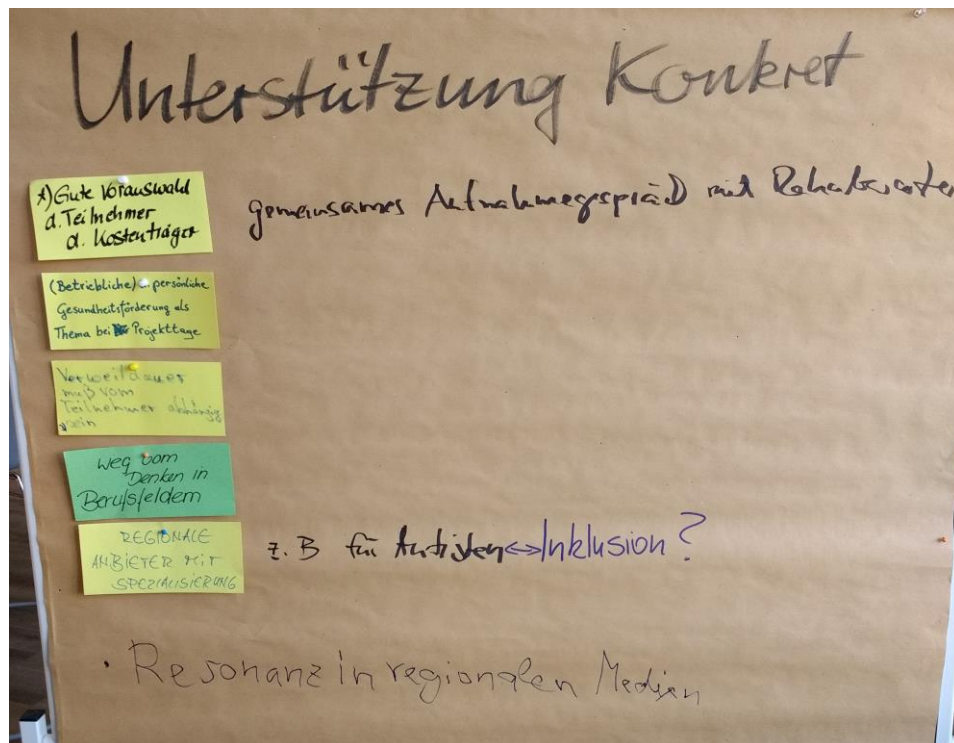 Unterstützung Konkret
*) Gute Vorauswahl
d. Teilnehmer
d. Kostenträger
gemeinsames Aufnahmegespräch mit Rehaberater
(Betriebliche) persönliche
Gesundheitsförderung als
Thema bei Projekttage
Verweildauer
muß vom
Teilnehmer abhängig
sein
Weg vom
Denken in
Berufsfeldern
REGIONALE
ANBIETER MIT
SPEZIALISIERUNG
z.B für Autisten <-> Inklusion?
• Resonanz in regionalen Medien